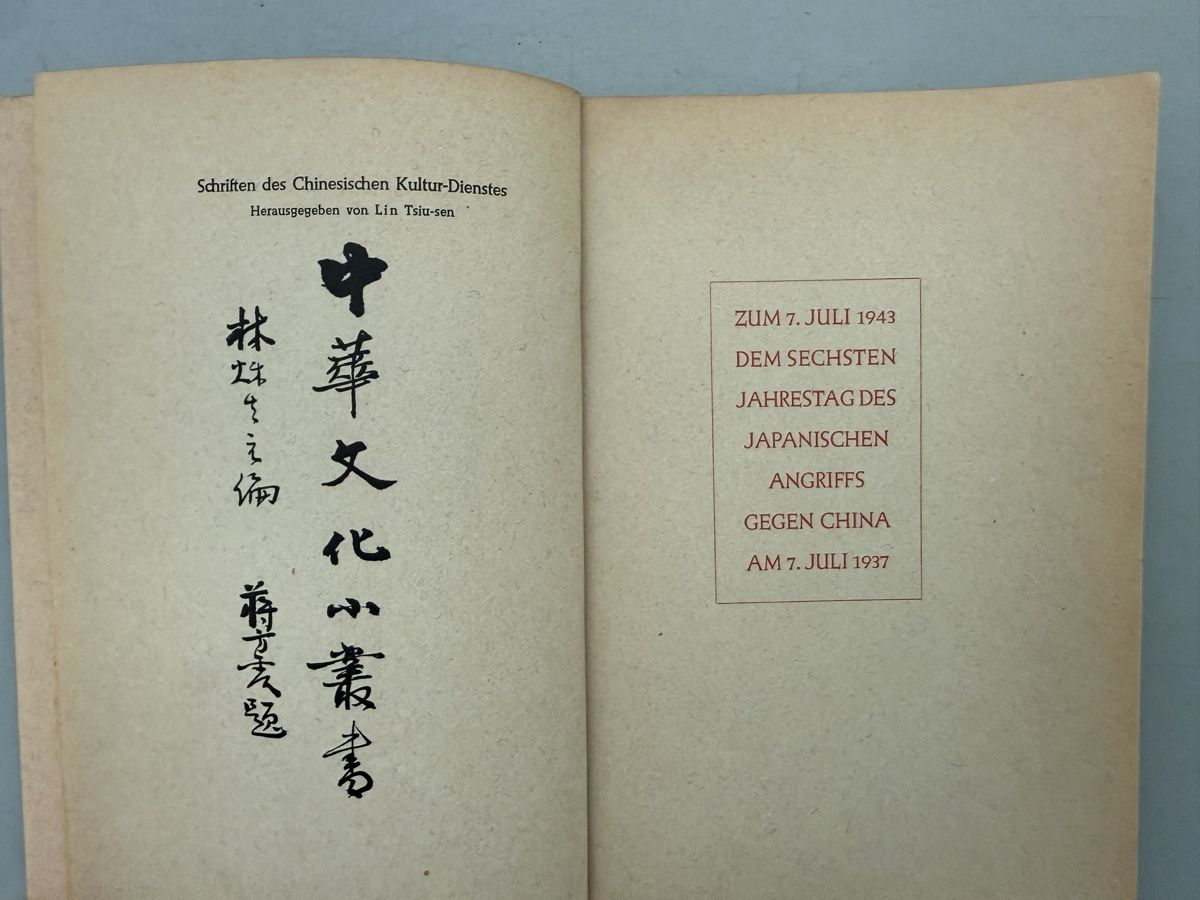 Schriften des Chinesischen Kultur-Dienstes
Herausgegeben von Lin Tsiu-sen
中華文化小叢書
林秌生主编
蔣
題
ZUM 7. JULI 1943
DEM SECHSTEN
JAHRESTAG DES
JAPANISCHEN
ANGRIFFS
GEGEN CHINA
AM 7. JULI 1937